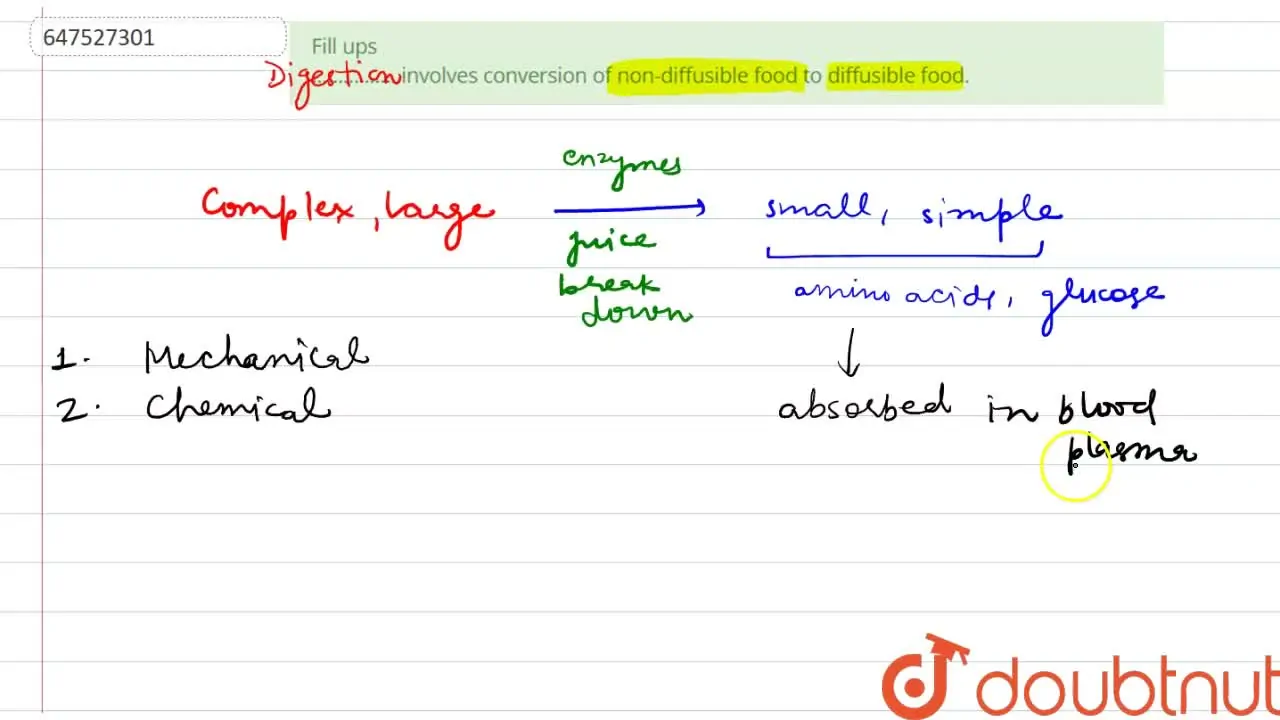 647527301
Fill ups
Digestion involves conversion of non-diffusible food to diffusible food.
enzymes
Complex, large
small, simple
juice
break
down
amino acids, glucose
1. Mechanical
2. Chemical
absorbed in blood
plasma
doubtnut